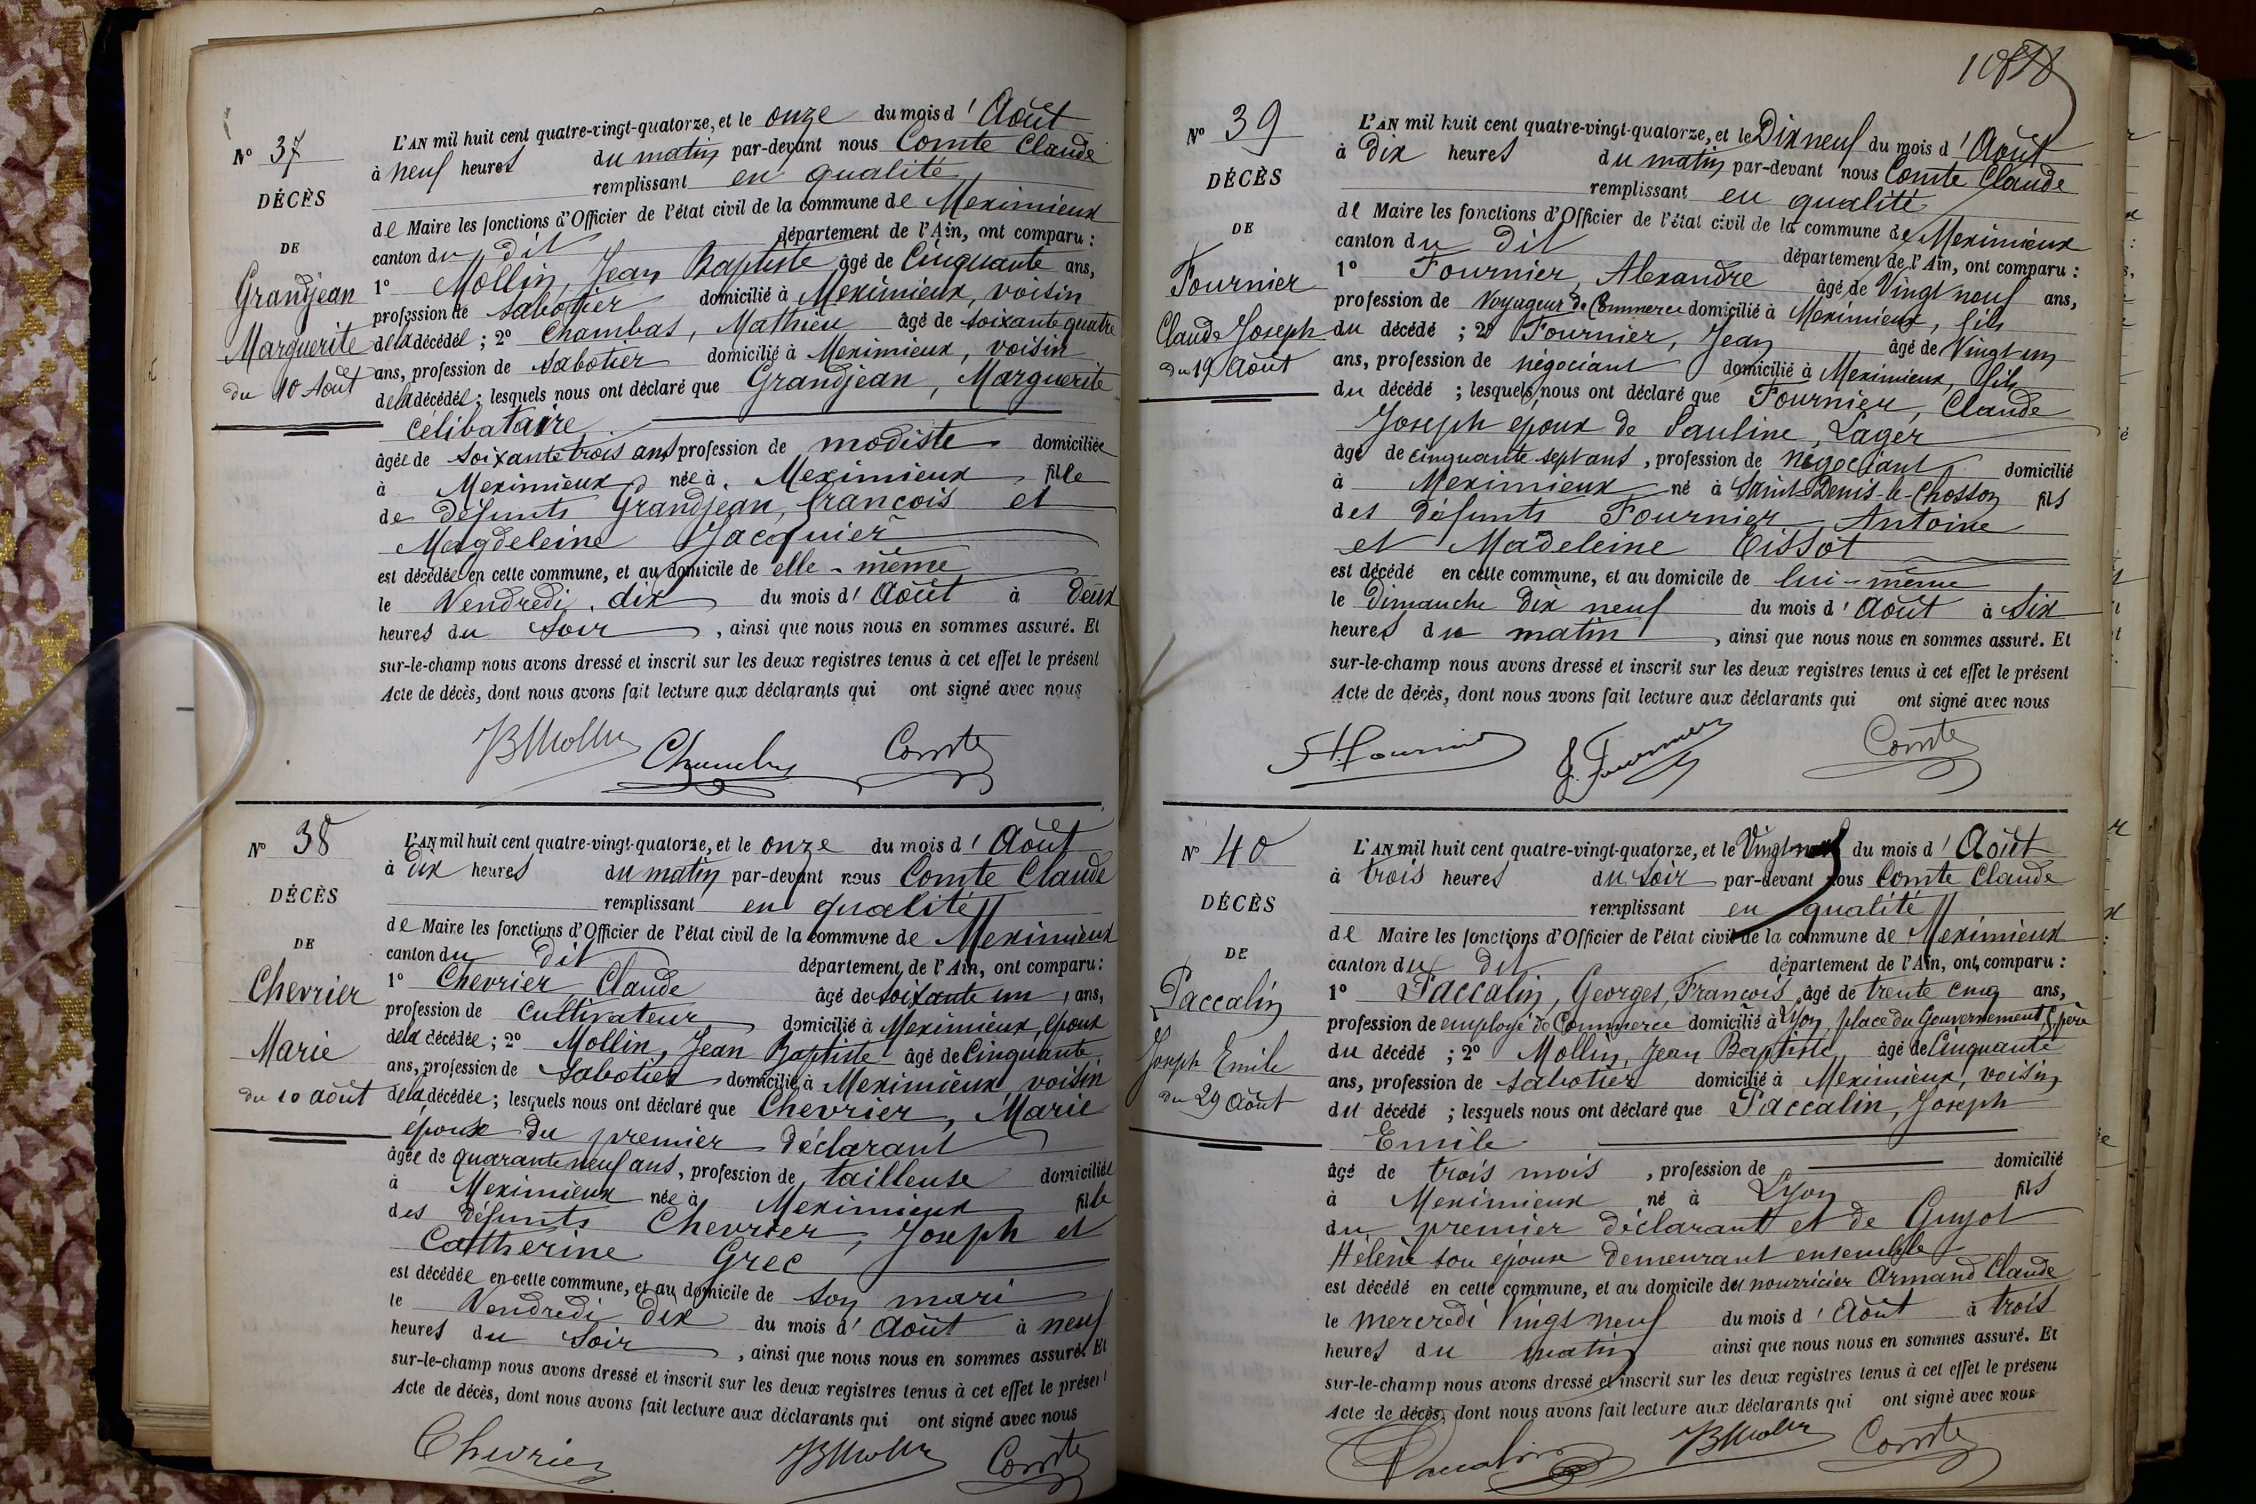 N° 37
DÉCÈS
DE
Grandjean
Marguerite
du 10 Août
L'AN mil huit cent quatre-vingt-quatorze, et le onze du mois d'Août
à neuf heures du matin par-devant nous Comte Claude
remplissant en qualité
de Maire les fonctions d'Officier de l'état civil de la commune de Meximieux
canton du dit département de l'Ain, ont comparu :
1° Mollin, Jean Baptiste âgé de Cinquante ans,
profession de sabotier domicilié à Meximieux, voisin
de la décédée ; 2° Chambas, Mathieu âgé de soixante quatre
ans, profession de sabotier domicilié à Meximieux, voisin
de la décédée ; lesquels nous ont déclaré que Grandjean, Marguerite
célibataire
âgée de soixante trois ans profession de modiste domiciliée
à Meximieux née à Meximieux fille
de défunts Grandjean, François et
Magdeleine Jacquier
est décédée en cette commune, et au domicile de elle-même
le Vendredi dix du mois d'Août à deux
heures du soir, ainsi que nous nous en sommes assuré. Et
sur-le-champ nous avons dressé et inscrit sur les deux registres tenus à cet effet le présent
Acte de décès, dont nous avons fait lecture aux déclarants qui ont signé avec nous
JB Mollin Chambas Comte
N° 38
DÉCÈS
DE
Chevrier
Marie
du 10 août
L'AN mil huit cent quatre-vingt-quatorze, et le onze du mois d'Août
à dix heures du matin par-devant nous Comte Claude
remplissant en qualité
de Maire les fonctions d'Officier de l'état civil de la commune de Meximieux
canton du dit département de l'Ain, ont comparu :
1° Chevrier Claude âgé de soixante un, ans,
profession de Cultivateur domicilié à Meximieux, époux
de la décédée ; 2° Mollin, Jean Baptiste âgé de Cinquante
ans, profession de Sabotier domicilié à Meximieux, voisin
de la décédée ; lesquels nous ont déclaré que Chevrier, Marie
épouse du premier déclarant
âgée de quarante neuf ans, profession de tailleuse domiciliée
à Meximieux née à Meximieux fille
des défunts Chevrier, Joseph et
Catherine Grec
est décédée en cette commune, et au domicile de son mari
le Vendredi dix du mois d'Août à neuf
heures du soir, ainsi que nous nous en sommes assuré. Et
sur-le-champ nous avons dressé et inscrit sur les deux registres tenus à cet effet le présent
Acte de décès, dont nous avons fait lecture aux déclarants qui ont signé avec nous
Chevrier JB Mollin Comte
N° 39
DÉCÈS
DE
Fournier
Claude Joseph
du 19 Août
L'AN mil huit cent quatre-vingt-quatorze, et le Dix neuf du mois d'Août
à dix heures du matin par-devant nous Comte Claude
remplissant en qualité
de Maire les fonctions d'Officier de l'état civil de la commune de Meximieux
canton du dit département de l'Ain, ont comparu :
1° Fournier, Alexandre âgé de Vingt neuf ans,
profession de Voyageur de Commerce domicilié à Meximieux, fils
du décédé ; 2° Fournier, Jean âgé de Vingt un
ans, profession de négociant domicilié à Meximieux, fils
du décédé ; lesquels nous ont déclaré que Fournier, Claude
Joseph époux de Pauline, Lager
âgé de cinquante sept ans, profession de négociant domicilié
à Meximieux né à Saint-Denis-le-Chosson fils
des défunts Fournier, Antoine
et Madeleine Tissot
est décédé en cette commune, et au domicile de lui-même
le Dimanche Dix neuf du mois d'Août à six
heures du matin, ainsi que nous nous en sommes assuré. Et
sur-le-champ nous avons dressé et inscrit sur les deux registres tenus à cet effet le présent
Acte de décès, dont nous avons fait lecture aux déclarants qui ont signé avec nous
Fournier J. Fournier Comte
N° 40
DÉCÈS
DE
Paccalin
Joseph Emile
du 29 Août
L'AN mil huit cent quatre-vingt-quatorze, et le Vingt neuf du mois d'Août
à trois heures du soir par-devant nous Comte Claude
remplissant en qualité
de Maire les fonctions d'Officier de l'état civil de la commune de Meximieux
canton du dit département de l'Ain, ont comparu :
1° Paccalin, Georges, François âgé de trente cinq ans,
profession de employé de Commerce domicilié à Lyon, place du Gouvernement, 5, père
du décédé ; 2° Mollin, Jean Baptiste, âgé de Cinquante
ans, profession de sabotier domicilié à Meximieux, voisin
du décédé ; lesquels nous ont déclaré que Paccalin, Joseph
Emile
âgé de trois mois, profession de domicilié
à Meximieux né à Lyon fils
du premier déclarant et de Guyot
Hélène son épouse demeurant ensemble
est décédé en cette commune, et au domicile du nourricier Armand Claude
le mercredi Vingt neuf du mois d'Août à trois
heures du matin ainsi que nous nous en sommes assuré. Et
sur-le-champ nous avons dressé et inscrit sur les deux registres tenus à cet effet le présent
Acte de décès, dont nous avons fait lecture aux déclarants qui ont signé avec nous
Paccalin JB Mollin Comte